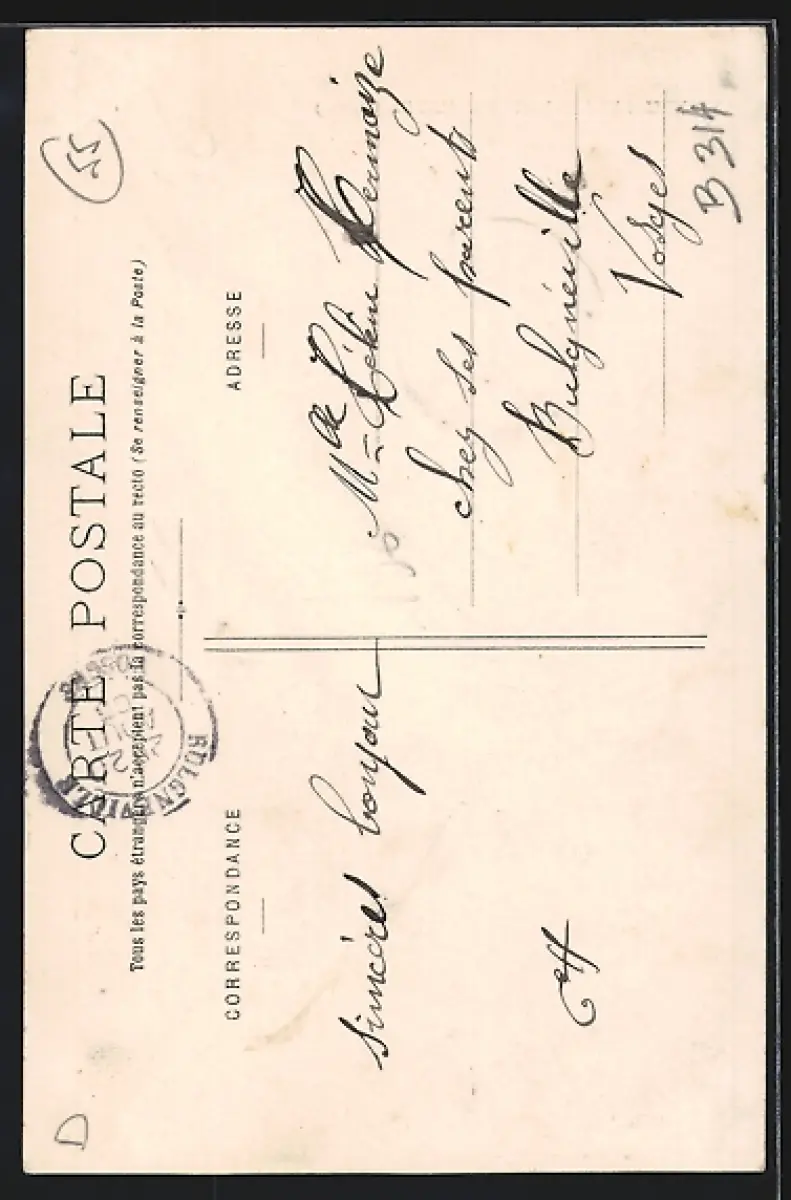 55
CARTE POSTALE
Tous les pays étrangers n'acceptent pas la correspondance au recto (Se renseigner à la Poste)
BULGNÉVILLE
VOSGES
CORRESPONDANCE
sincères bonjour
ADRESSE
Mlle
chez ses parents
Bulgnéville
Vosges
B 314
D